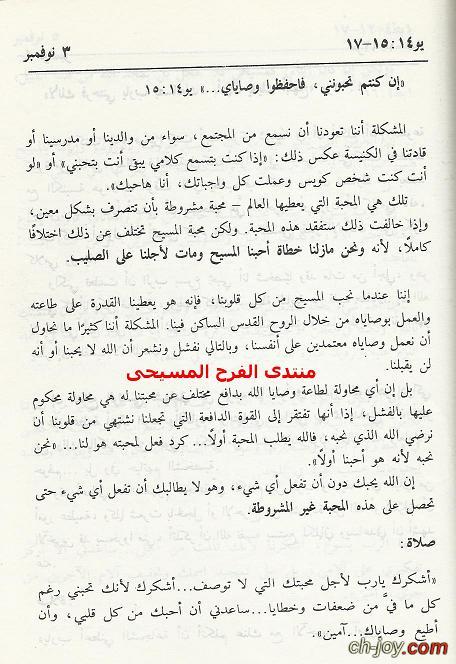 يو١٤:١٥-١٧
٣ نوفمبر
«إن كنتم تحبونني، فاحفظوا وصاياي...» يو١٤:١٥
المشكلة أننا تعودنا أن نسمع من المجتمع، سواء من والدينا أو مدرسينا أو
قادتنا في الكنيسة عكس ذلك: «إذا كنت بتسمع كلامي يبقى أنت بتحبني» أو «لو
أنت كنت شخص كويس وعملت كل واجباتك، أنا هاحبك».
تلك هي المحبة التي يعطيها العالم – محبة مشروطة بأن تتصرف بشكل معين،
وإذا خالفت ذلك ستفقد هذه المحبة. ولكن محبة المسيح تختلف عن ذلك اختلافًا
كاملًا، لأنه ونحن مازلنا خطاة أحبنا المسيح ومات لأجلنا على الصليب.
إننا عندما نحب المسيح من كل قلوبنا، فإنه هو يعطينا القدرة على طاعته
والعمل بوصاياه من خلال الروح القدس الساكن فينا. المشكلة أننا كثيرًا ما نحاول
أن نعمل وصاياه معتمدين على أنفسنا، وبالتالي نفشل ونشعر أن الله لا يحبنا أو أنه
لن يقبلنا.
منتدى الفرح المسيحى
بل إن أي محاولة لطاعة وصايا الله بدافع مختلف عن محبتنا له هي محاولة محكوم
عليها بالفشل، إذا أنها تفتقر إلى القوة الدافعة التي تجعلنا نشتهي من قلوبنا أن
نرضي الله الذي نحبه، فالله يطلب المحبة أولًا... كرد فعل لمحبته هو لنا... «نحن
نحبه لأنه هو أحبنا أولًا».
إن الله يحبك دون أن تفعل أي شيء، وهو لا يطالبك أن تفعل أي شيء حتى
تحصل على هذه المحبة غير المشروطة.
صلاة:
«أشكرك يارب لأجل محبتك التي لا توصف...أشكرك لأنك تحبني رغم
كل ما فيَّ من ضعفات وخطايا...ساعدني أن أحبك من كل قلبي، وأن
أطيع وصاياك...آمين».
ch-joy.com